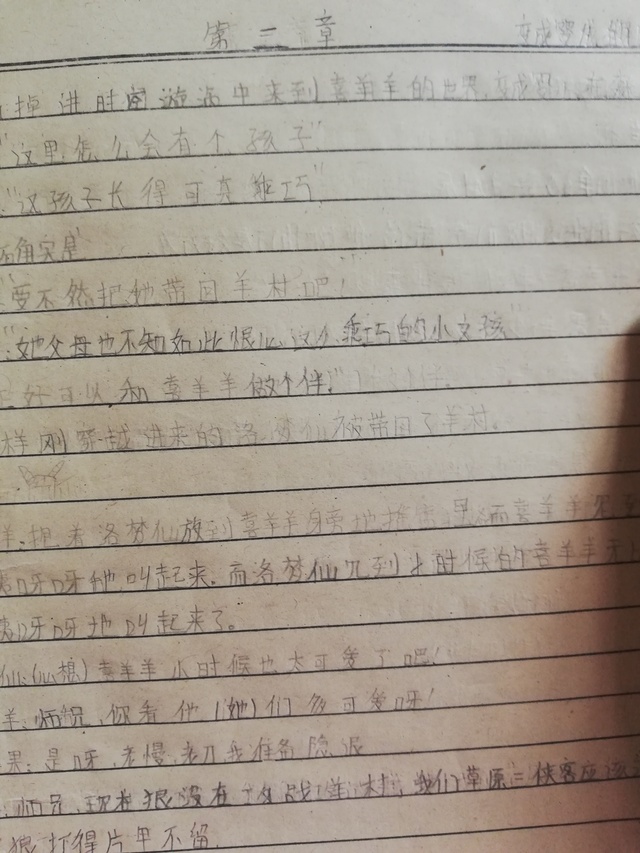 第三章 变成婴儿的
掉进时间漩涡中来到喜羊羊的世界,变成
"这里怎么会有个孩子"
"这孩子长得可真乖巧"
确实是
"要不然把她带回羊村吧!
:她父母也不知如此狠心,这么乖巧的小女孩"
正好可以和喜羊羊做个伴."
样刚穿越进来的洛梦仙被带回了羊村。
羊:把着洛梦仙放到喜羊羊身旁地推车里,而喜羊羊
咦呀呀地叫起来.而洛梦仙见到小时候的喜羊羊
咦呀呀地叫起来了。
仙:(心想)喜羊羊小时候也太可爱了吧!
羊:师兄,你看他(她)们多可爱呀!
果:是呀,老慢,老刀我准备隐退
:师兄,现在狼没有羊村,我们草原三侠客应该
狼打得片甲不留.